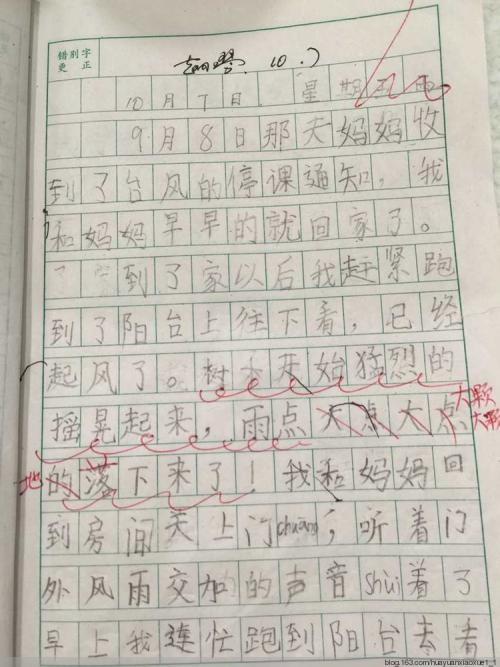 错别字
更 正
10.)
10月7日. 星期五 雨
9月8日那天妈妈收
到了台风的停课通知，我
和妈妈早早的就回家了。
到了家以后我赶紧跑
到了阳台上往下看，已经
起风了。树木开始猛烈的
大颗
摇晃起来，雨点大点大点
大颗
地
的落下来了！我和妈妈回
到房间关上门chuāng，听着门
外风雨交加的声音shuì着了
早上我连忙跑到阳台去看
blog.163.com/huayuanxiaoxue1_1